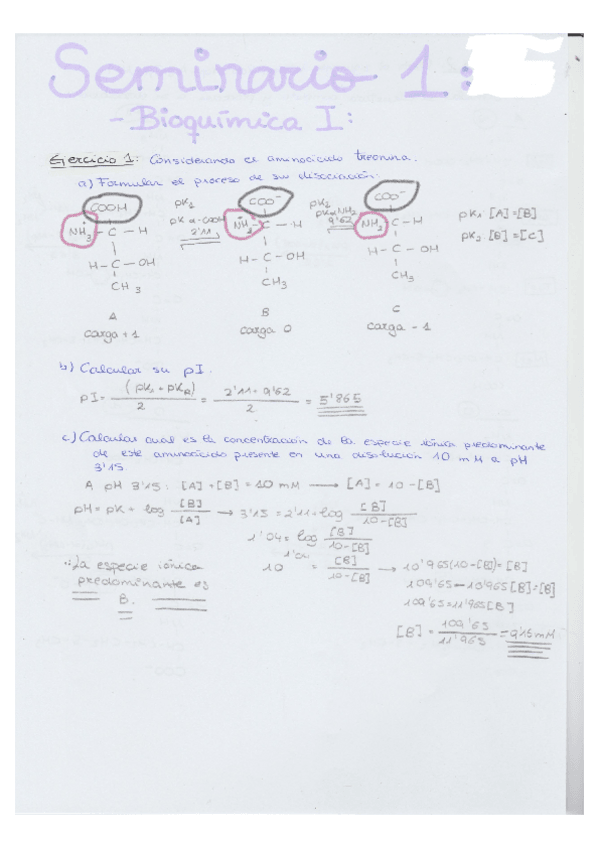 Seminario 1:
- Bioquímica I:
Ejercicio 1: Considerando el aminoácido treonina.
a) Formular el proceso de su disociación:
COOH pK1 COO⁻ pK2 COO⁻
NH3 - C - H pK α-COOH 2'11 NH3 - C - H pK α NH2 9'62 NH2 - C - H pK1 [A]=[B]
pK2 [B]=[C]
H - C - OH H - C - OH H - C - OH
CH3 CH3 CH3
A B C
carga +1 carga 0 carga -1
b) Calcular su pI.
pI = (pK1 + pKR) / 2 = 2'11 + 9'62 / 2 = 5'865
c) Calcular cual es la concentración de la especie iónica predominante
de este aminoácido presente en una disolución 10 mM a pH
3'15
A pH 3'15: [A] + [B] = 10 mM → [A] = 10 - [B]
pH = pK + log [B] / [A] → 3'15 = 2'11 + log [B] / 10-[B]
1'04 = log [B] / 10-[B]
∴ La especie iónica 10^1'04 = [B] / 10-[B] → 10'965(10-[B]) = [B]
predominante es 109'65 - 10'965[B] = [B]
B. 109'65 = 11'965[B]
[B] = 109'65 / 11'965 = 9'15 mM